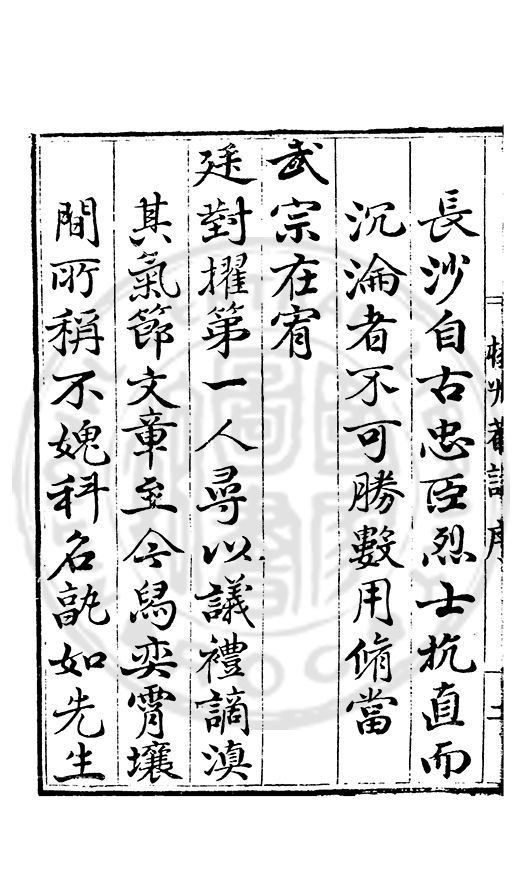 長沙自古忠臣烈士抗直而
沉淪者不可勝數用脩當
武宗在宥
廷對擢第一人尋以議禮謫滇
其氣節文章至今舄奕霄壤
間所稱不媿科名孰如先生